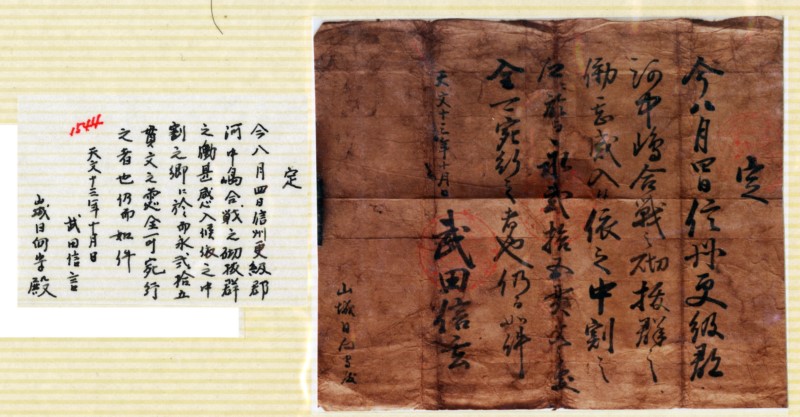 定
今八月四日信州更級郡
河中嶋合戦之砌抜群之
働甚感入候依之中割之
永弐拾五貫文之処
全可宛行之者也仍而如件
天文十三年十月日
武田信玄
山城日向守殿
定
今八月四日信州更級郡
河中嶋合戦之砌抜群
之働甚感入候依之中
割之郷ニ於而永弐拾五
貫文之處全可宛行
之者也仍而如件
天文十三年十月日
1544
武田信玄
山城日向守殿